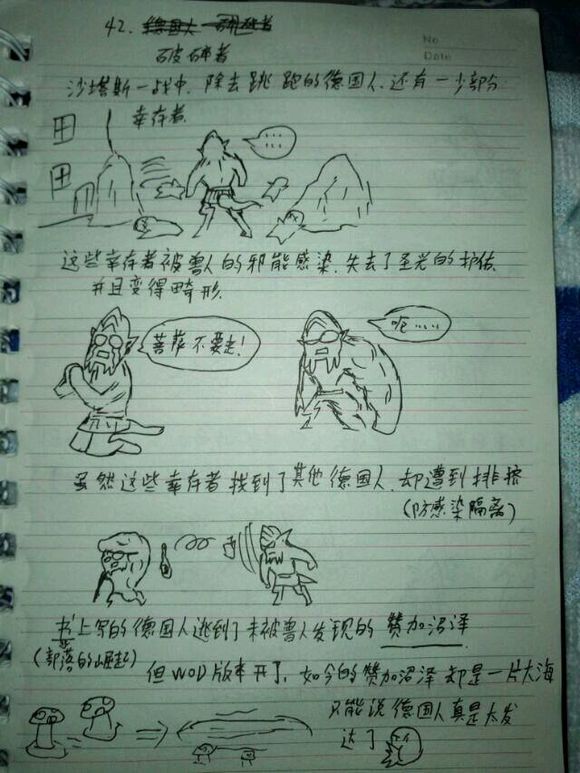 42.
破碎者
No
Date
沙塔斯一战中,除去跳跑的德国人,还有一少部分
幸存者.
......
这些幸存者被兽人的邪能感染.失去了圣光的护佑.
并且变得畸形.
菩萨不要走!
呃......
虽然这些幸存者找到了其他德国人.却遭到排挤
(防感染隔离)
书上写的德国人逃到了未被兽人发现的 赞加沼泽
(部落的崛起)
但WOD版本开了,如今的赞加沼泽却是一片大海
只能说德国人真是太发
达了